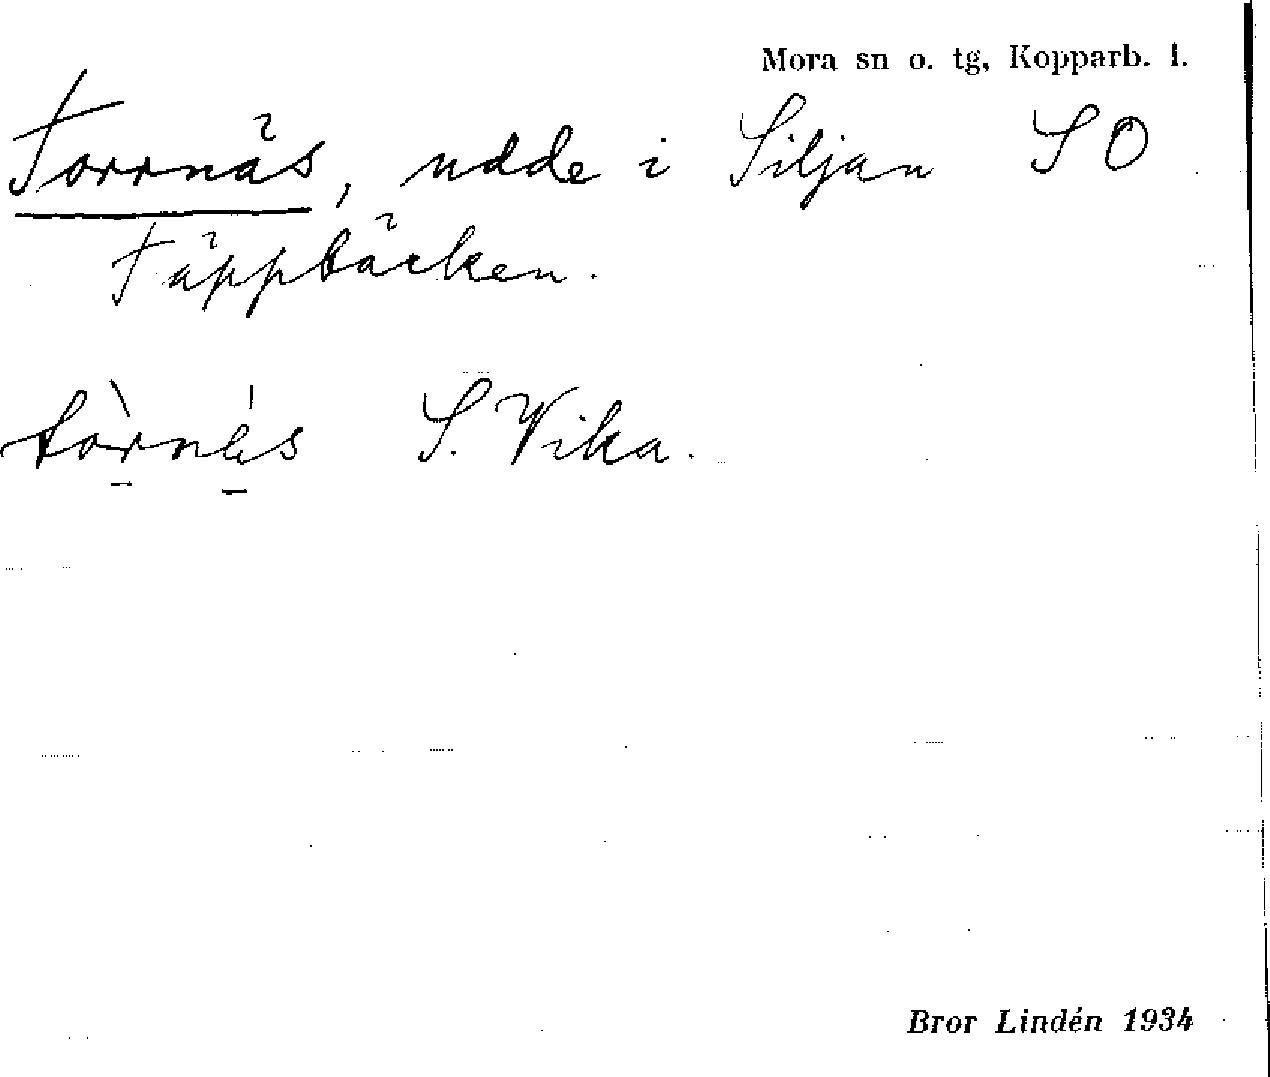 Mora sn o. tg, Kopparb. l.
Torrnäs, udde i Siljan SO
Täppbäcken.
tòrnés S. Vika.
Bror Lindén 1934